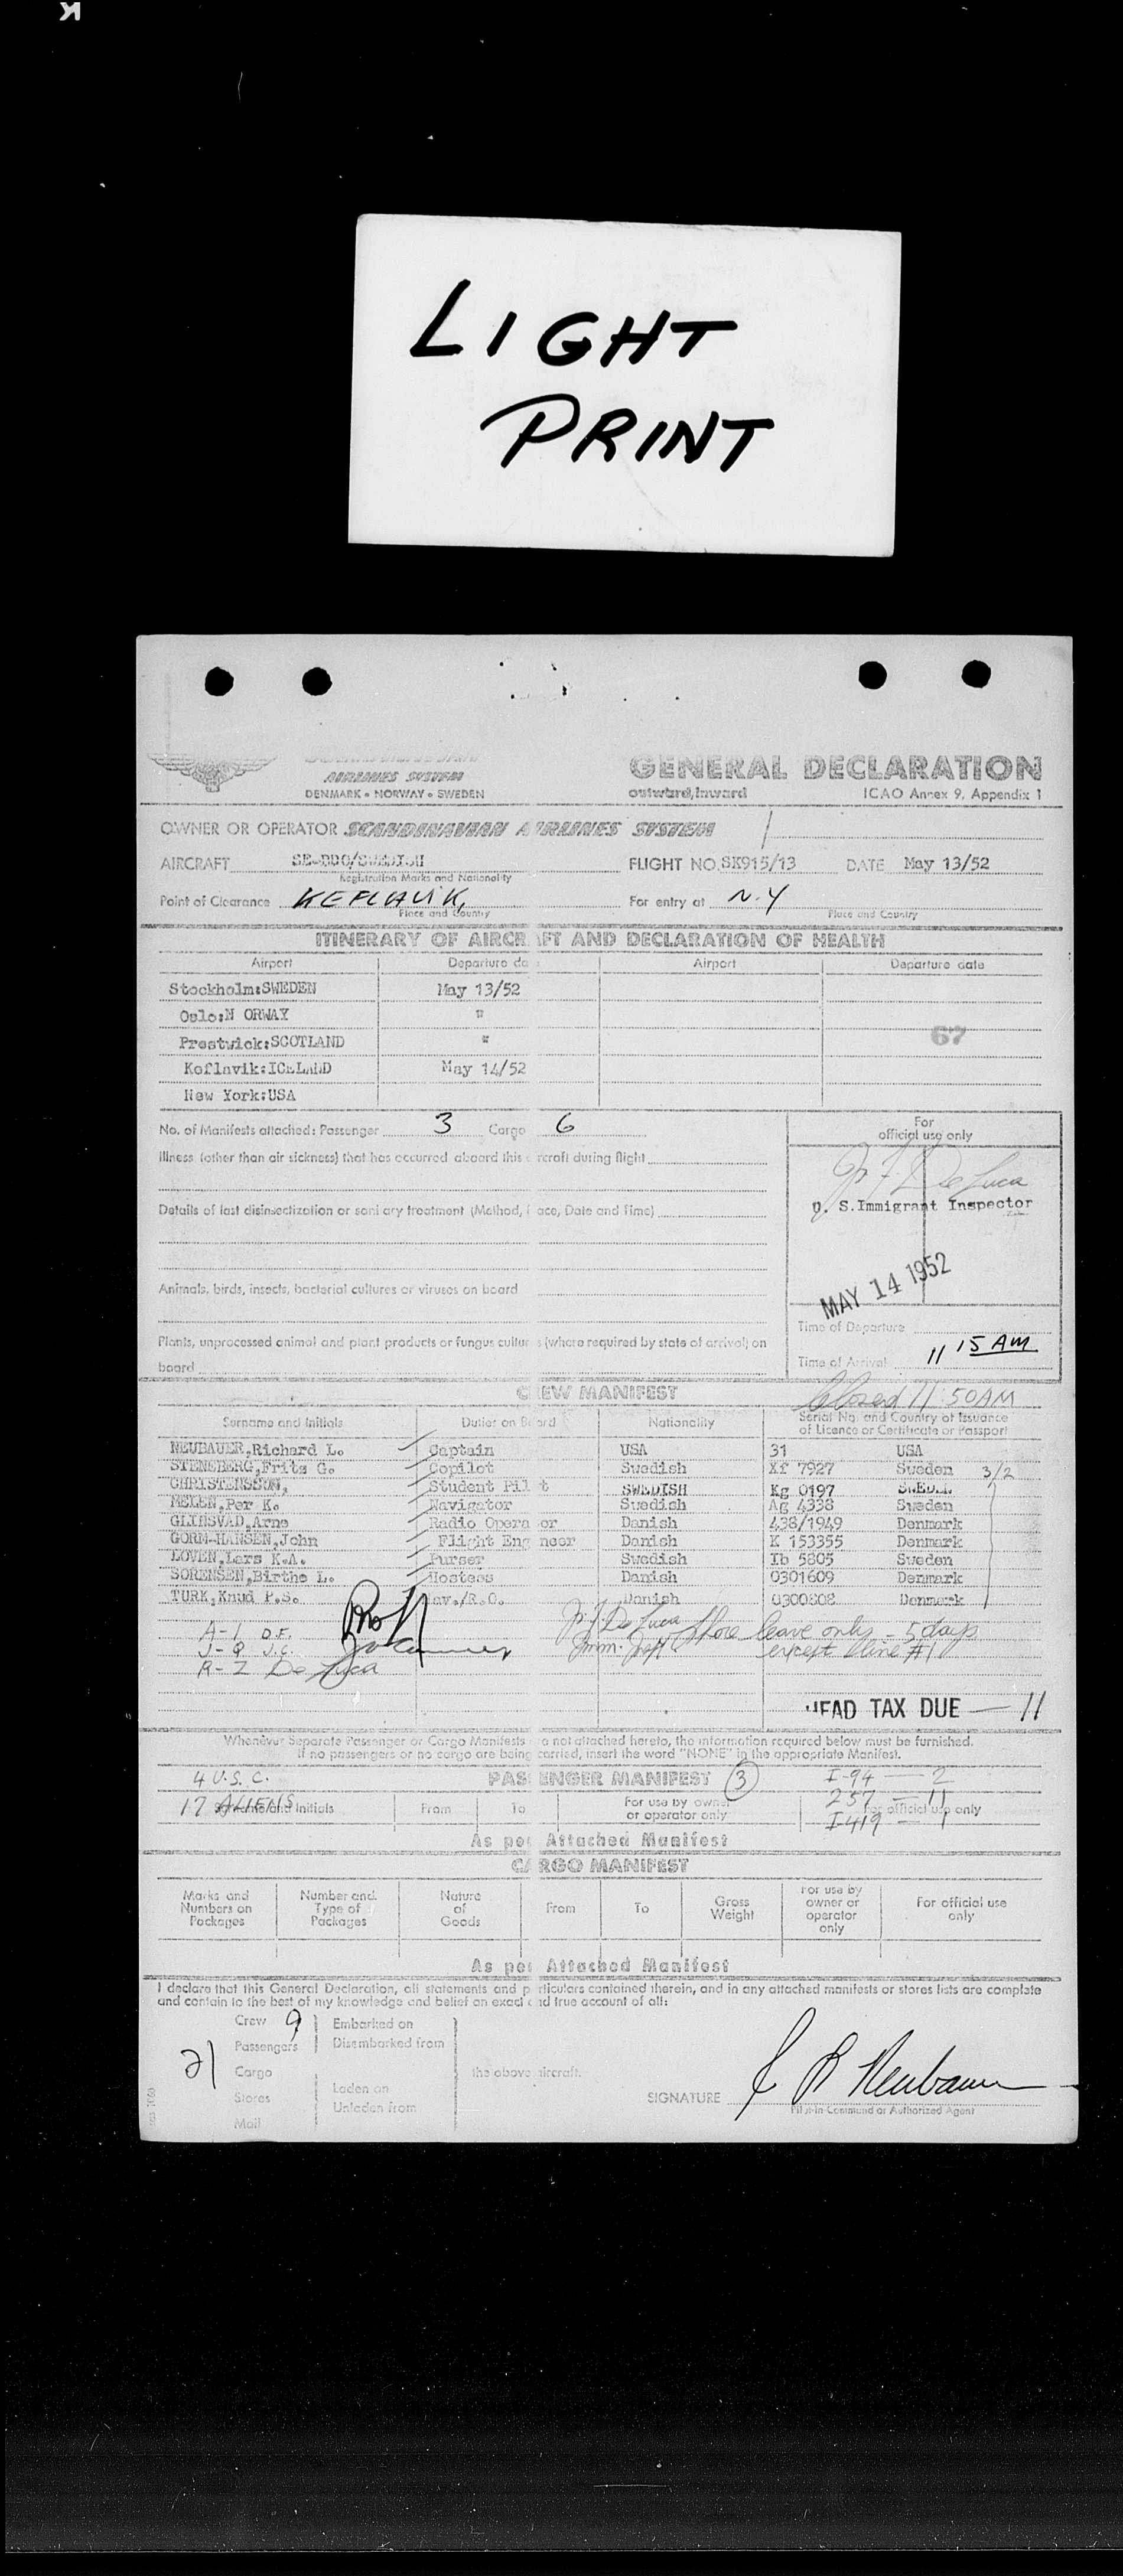 K
LIGHT
PRINT
AIRLINES SYSTEM
DENMARK • NORWAY • SWEDEN
GENERAL DECLARATION
outward, inward
ICAO Annex 9, Appendix 1
OWNER OR OPERATOR SCANDINAVIAN AIRLINES SYSTEM
AIRCRAFT /SWEDISH FLIGHT NO. SK915/13 DATE May 13/52
Registration Marks and Nationality
Point of Clearance KEFLAVIK, For entry at N.Y
Place and Country Place and Country
ITINERARY OF AIRCRAFT AND DECLARATION OF HEALTH
Airport Departure da Airport Departure date
Stockholm:SWEDEN May 13/52
Oslo:N ORWAY "
Prestwick:SCOTLAND " 67
Keflavik:ICELAND May 14/52
New York:USA
No. of Manifests attached: Passenger 3 Cargo 6
For
official use only
Illness (other than air sickness) that has occurred aboard this rcraft during flight
De Luca
U. S.Immigrant Inspector
Details of last disinsectization or sani ary treatment (Method, ace, Date and Time)
MAY 14 1952
Animals, birds, insects, bacterial cultures or viruses on board
Time of Departure
Plants, unprocessed animal and plant products or fungus cultur s (where required by state of arrival) on
board
Time of Arrival 11 15 AM
C EW MANIFEST
Closed 11:50AM
Surname and Initials Duties on B ard Nationality Serial No. and Country of Issuance
of Licence or Certificate or Passport
NEUBAUER,Richard L. Captain USA 31 USA
STENEBERG,Fritz G. Copilot Swedish Xf 7927 Sweden 3/2
CHRISTENSSON, Student Pil t SWEDISH Kg 0197 SWEDEN
MELEN,Per K. Navigator Swedish Ag 4338 Sweden
GLINSVAD,Arne Radio Opera or Danish 438/1949 Denmark
GORM-HANSEN,John Flight Eng neer Danish K 153355 Denmark
LOVEN,Lars K.A. Purser Swedish Ib 5805 Sweden
SORENSEN,Birthe L. Hostess Danish 0301609 Denmark
TURK,Knud P.S. av./R.O. Danish 0300808 Denmark
A-1 D.F.
J-8 J.C.
R-Z De Luca
De Luca Shore leave only - 5 days
Imm. Insp except line #1
HEAD TAX DUE — 11
Whenever Separate Passenger or Cargo Manifests are not attached hereto, the information required below must be furnished.
If no passengers or no cargo are being carried, insert the word "NONE" in the appropriate Manifest.
4 U.S.C. PAS ENGER MANIFEST 3 I-94 — 2
17 ALIENS 257 — 11
Surname and Initials From To For use by owner
or operator only For official use only
I-419 — 1
As per Attached Manifest
CARGO MANIFEST
Marks and
Numbers on
Packages
Number and
Type of
Packages
Nature
of
Goods
From
To
Gross
Weight
For use by
owner or
operator
only
For official use
only
As per Attached Manifest
I declare that this General Declaration, all statements and particulars contained therein, and in any attached manifests or stores lists are complete
and contain to the best of my knowledge and belief an exact and true account of all:
Crew 9 Embarked on
Passengers Disembarked from
21
Cargo the above aircraft.
Stores Laden on
Unladen from
Mail
SIGNATURE R Neubauer
Pilot-in-Command or Authorized Agent